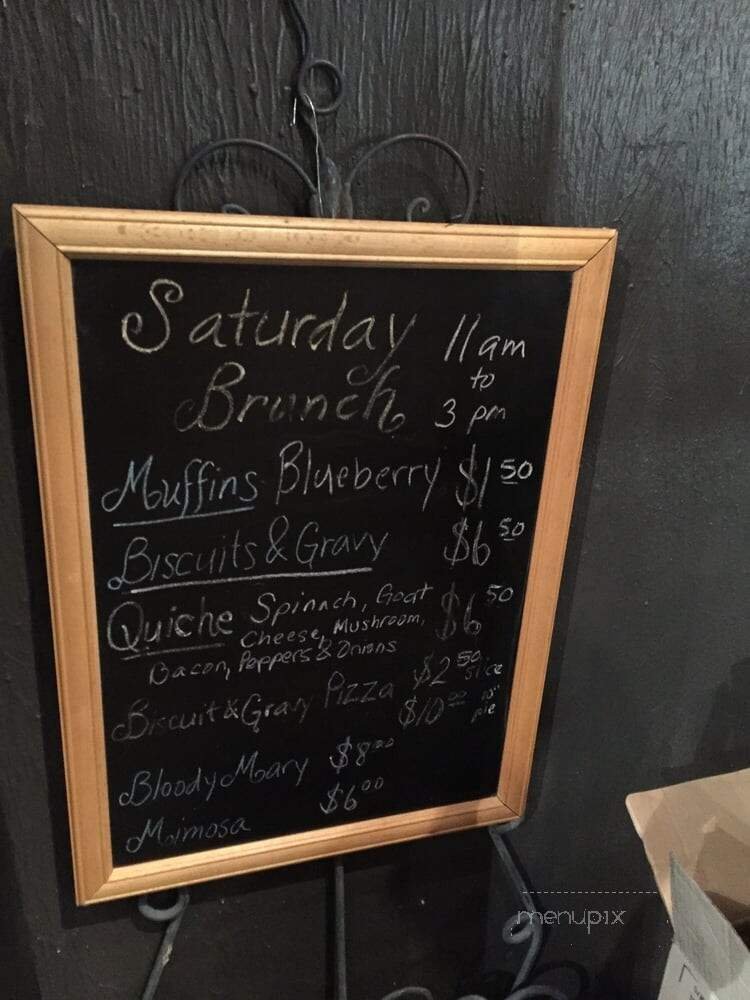 Saturday 11am
Brunch to
3 pm
Muffins Blueberry $1.50
Biscuits & Gravy $6.50
Quiche Spinach, Goat $6.50
Cheese, Mushroom,
Bacon, Peppers & Onions
Biscuit & Gravy Pizza $2.50 slice
$10.00 10" pie
Bloody Mary $8.00
Mimosa $6.00
menupix